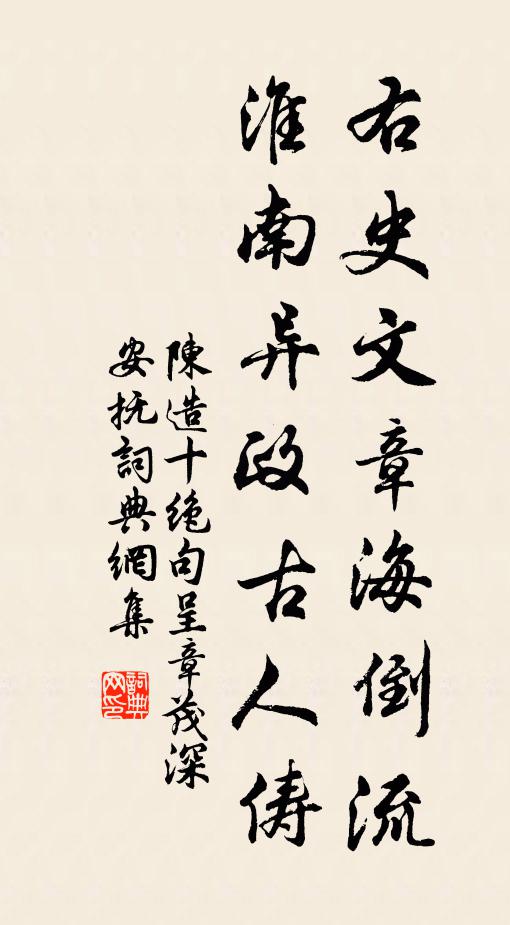 右史文章海倒流
淮南异政古人俦
陳造十絶句呈章茂深
安抚詞典網集
詞典网印